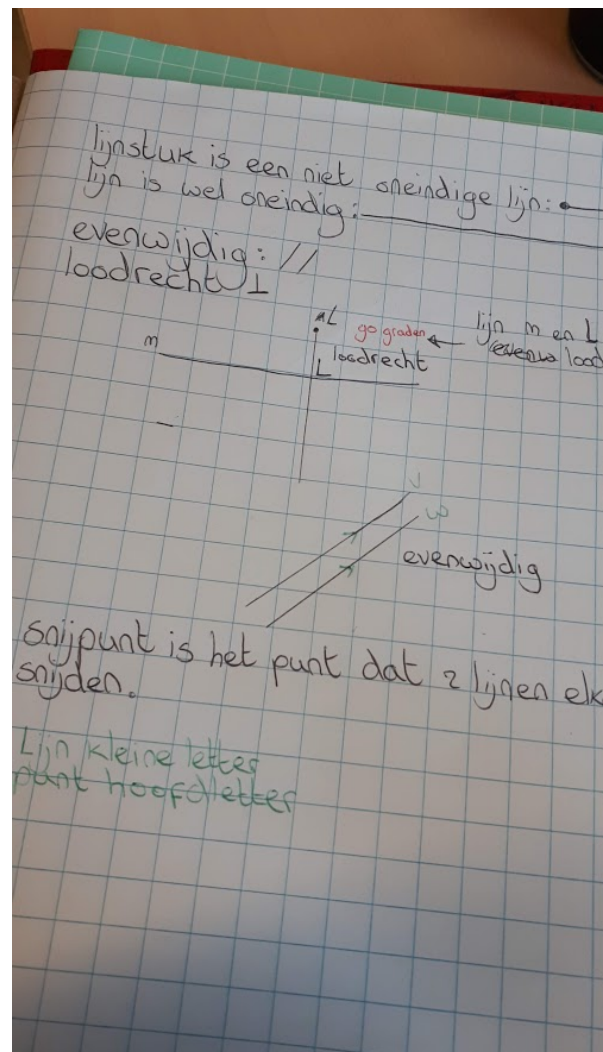 lijnstuk is een niet oneindige lijn:
lijn is wel oneindig:
evenwijdig: //
loodrecht ⊥
m
L
90 graden ← lijn m en L
loodrecht
evenw lood
v
w
evenwijdig
snijpunt is het punt dat 2 lijnen elk
snijden.
Lijn kleine letter
punt hoofdletter